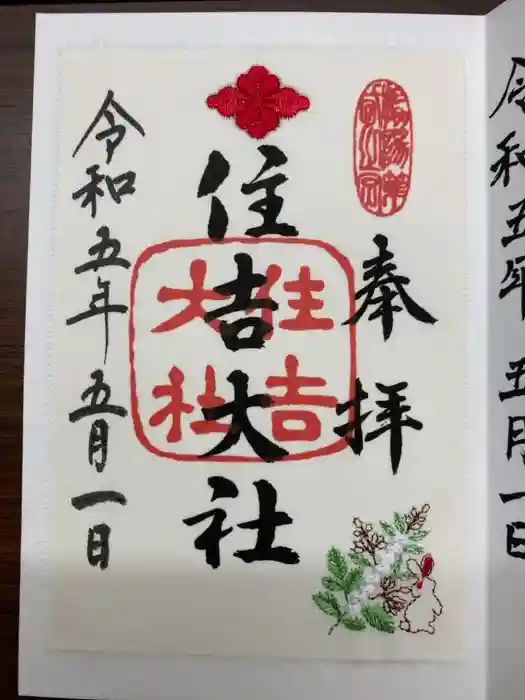 奉拝
住吉大社
住吉
大社
令和五年五月一日
令和五年五月一日